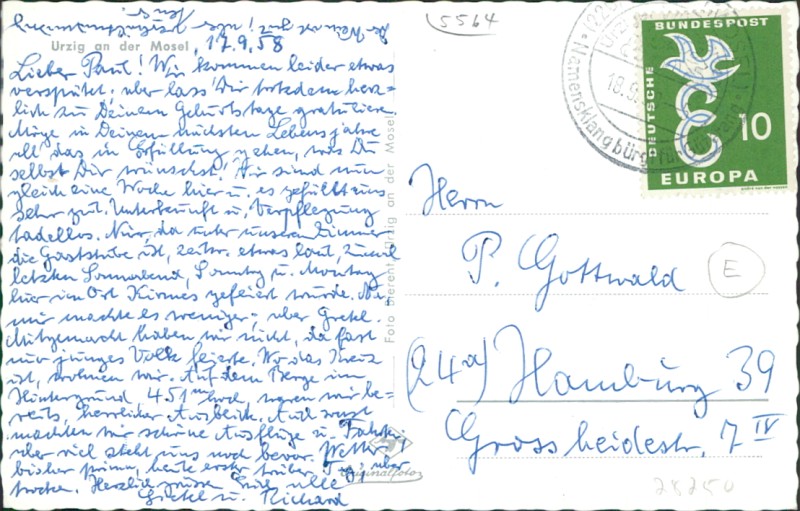 Urzig an der Mosel 17.9.58
Lieber Paul! Wir kommen leider etwas
verspätet, aber lass Dir trotzdem herz-
lich zu Deinem Geburtstage gratulieren.
Möge in Deinem nächsten Lebensjahre
all das in Erfüllung gehen, was Du
selbst Dir wünschst. Wir sind nun
gleich eine Woche hier u. es gefällt uns
sehr gut. Unterkunft u. Verpflegung
tadellos. Nur, da unter unserem Zimmer
die Gaststube ist, zeitw. etwas laut, zumal
letzten Sonnabend, Sonntag u. Montag
hier im Ort Kirmes gefeiert wurde.
mir machte es weniger, aber Gretel.
Mitgemacht haben wir nicht, da fast
nur junges Volk feierte. Wo das Kreuz
ist, wohnen wir. Auf dem Berge im
Hintergrund, 451 m hoch, waren wir be-
reits, herrlicher Ausblick. Auch sonst
machten wir schöne Ausflüge u. Fahrten
aber viel steht uns noch bevor. Wetter
bisher prima, heute erster trüber Tag, aber
trocken. Herzlich grüssen Euch alle
Gretel u. Richard
Foto Bierens Urzig an der Mosel
Originalfoto
5564
18.9.
Namensklang bürgt für
DEUTSCHE BUNDESPOST
10
EUROPA
Herrn
P. Gottwald
E
(24a) Hamburg 39
Grossheidestr. 7 IV
78750